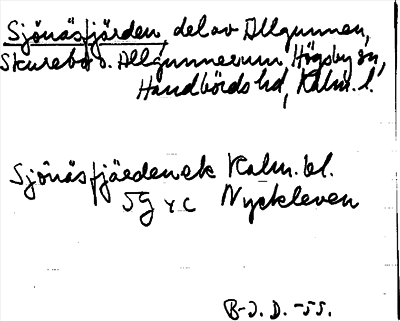 Sjönäsfjärden, del av Allgunnen,
Skurebo o. Allgunnerum, Högsby sn,
Handbörds hd, Kalm. l.
Sjönäsfjärden ek Kalm. bl.
5g v c Nyckleven
B-J. D. -55.